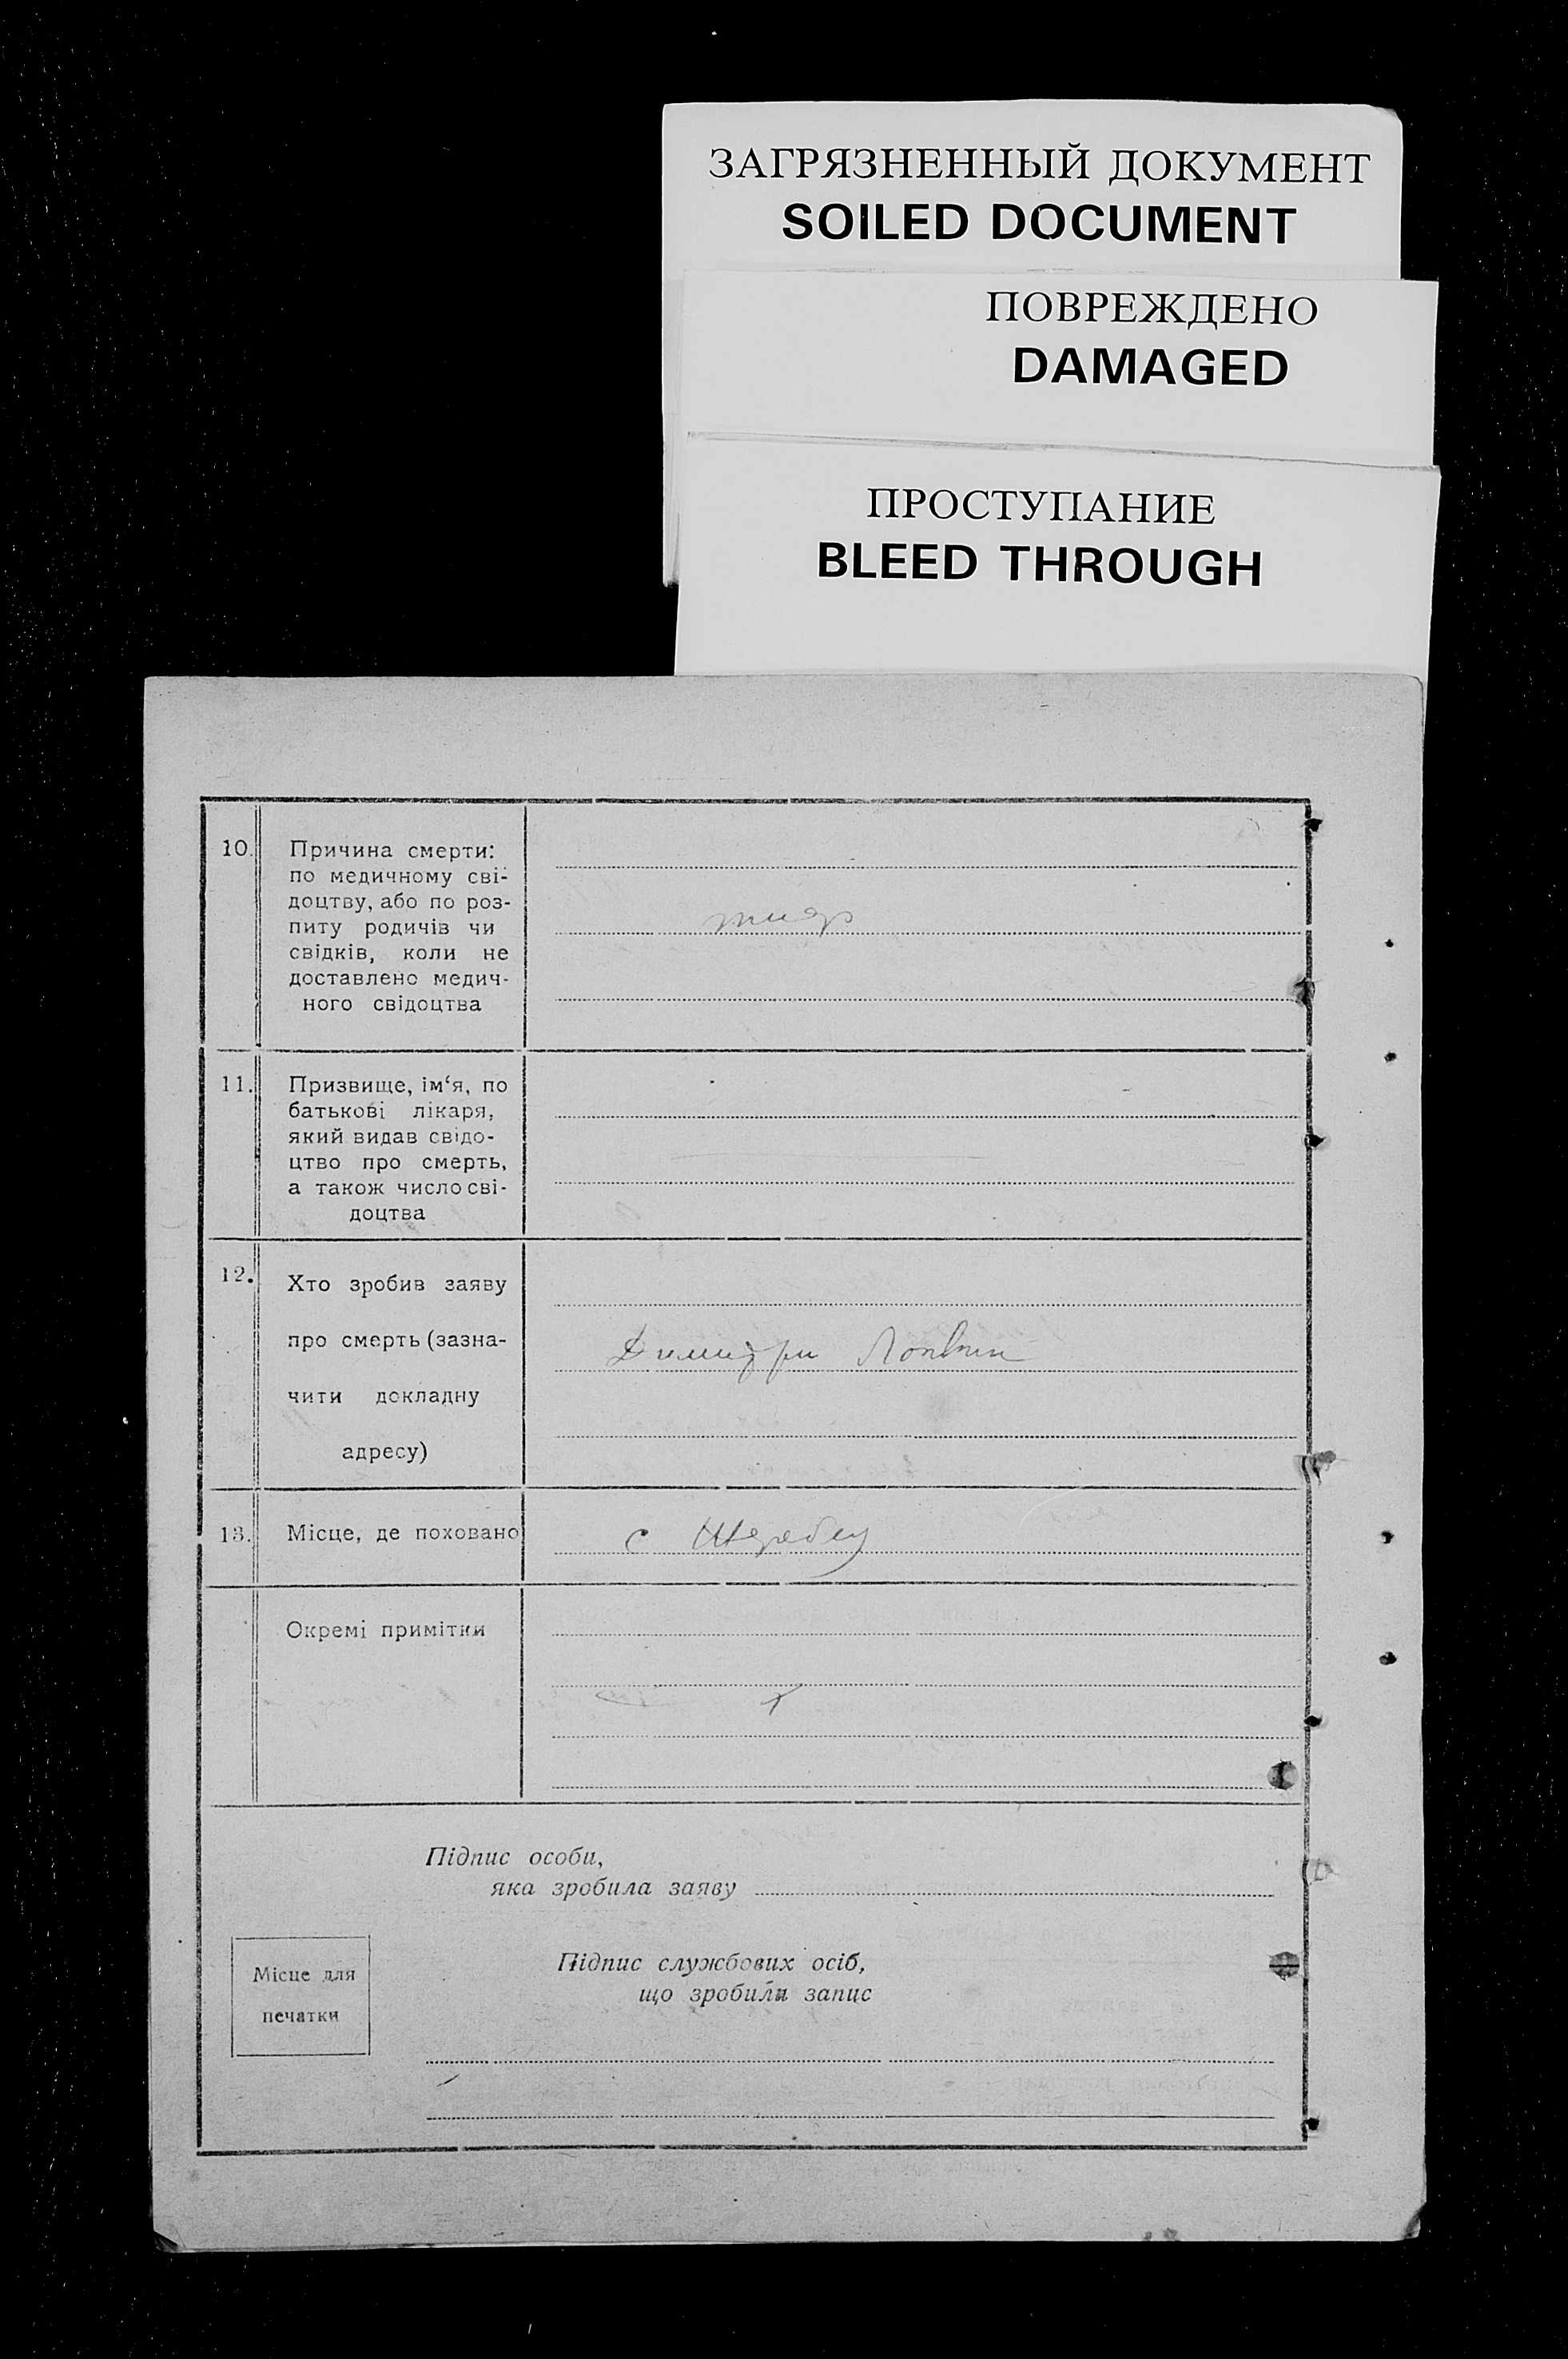 ЗАГРЯЗНЕННЫЙ ДОКУМЕНТ
SOILED DOCUMENT
ПОВРЕЖДЕНО
DAMAGED
ПРОСТУПАНИЕ
BLEED THROUGH
10. Причина смерти:
по медичному сві-
доцтву, або по роз-
питу родичів чи
свідків, коли не
доставлено медич-
ного свідоцтва
11. Призвище, ім‘я, по
батькові лікаря,
який видав свідо-
цтво про смерть,
а також число сві-
доцтва
12. Хто зробив заяву
про смерть (зазна-
чити докладну
адресу)
13. Місце, де поховано
с
Окремі примітки
Підпис особи,
яка зробила заяву
Місце для
печатки
Підпис службових осіб,
що зробили запис